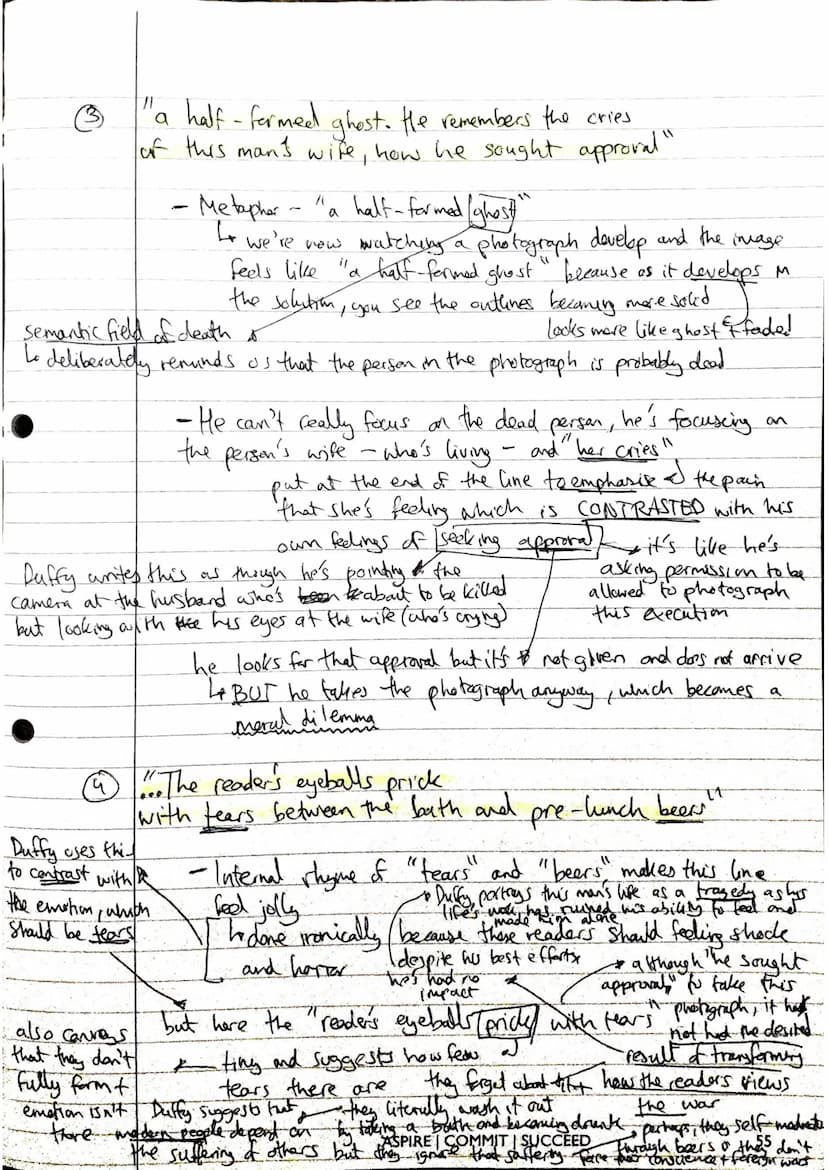 ③ "a half-formed ghost. He remembers the cries
of this man's wife, how he sought approval"
- Metaphor - "a half-formed ghost"
↳ we're now watching a photograph develop and the image
feels like "a half-formed ghost" because as it develops in
the solution, you see the outlines becoming more solid
looks more like ghost & faded
semantic field of death
↳ deliberately reminds us that the person in the photograph is probably dead
- He can't really focus on the dead person, he's focusing on
the person's wife - who's living - and "her cries"
put at the end of the line to emphasise the pain
that she's feeling which is CONTRASTED with his
own feelings of seeking approval
it's like he's
asking permission to be
allowed to photograph
this execution
Duffy writes this as though he's pointing the
camera at the husband who's about to be killed
but looking with his eyes at the wife (who's crying)
he looks for that approval but it's not given and does not arrive
↳ BUT he takes the photograph anyway, which becomes a
moral dilemma
④ "...The reader's eyeballs prick
with tears between the bath and pre-lunch beers"
Duffy uses this
to contrast with
the emotion, which
should be tears
- Internal rhyme of "tears" and "beers" makes this line
feel jolly
↳ done ironically because these readers should feeling shock
and horror
Duffy portrays this man's life as a tragedy as his
life's work has ruined his ability to feel and
made him alone
despite his best efforts
he's had no
impact
although "he sought
approval" to take this
photograph, it has
not had the desired
result of transforming
how the readers views
the war
but here the "reader's eyeballs prick with tears"
tiny and suggests how few
tears there are
also conveys
that they don't
fully form &
emotion isn't
there
they forget about it
they literally wash it out
by taking a bath and becoming drunk
Duffy suggests that
modern people depend on
the suffering of others but they ignore that suffering
perhaps, they self-medicate
through beers & they don't
face conscience & foreign wars
ASPIRE | COMMIT | SUCCEED
55